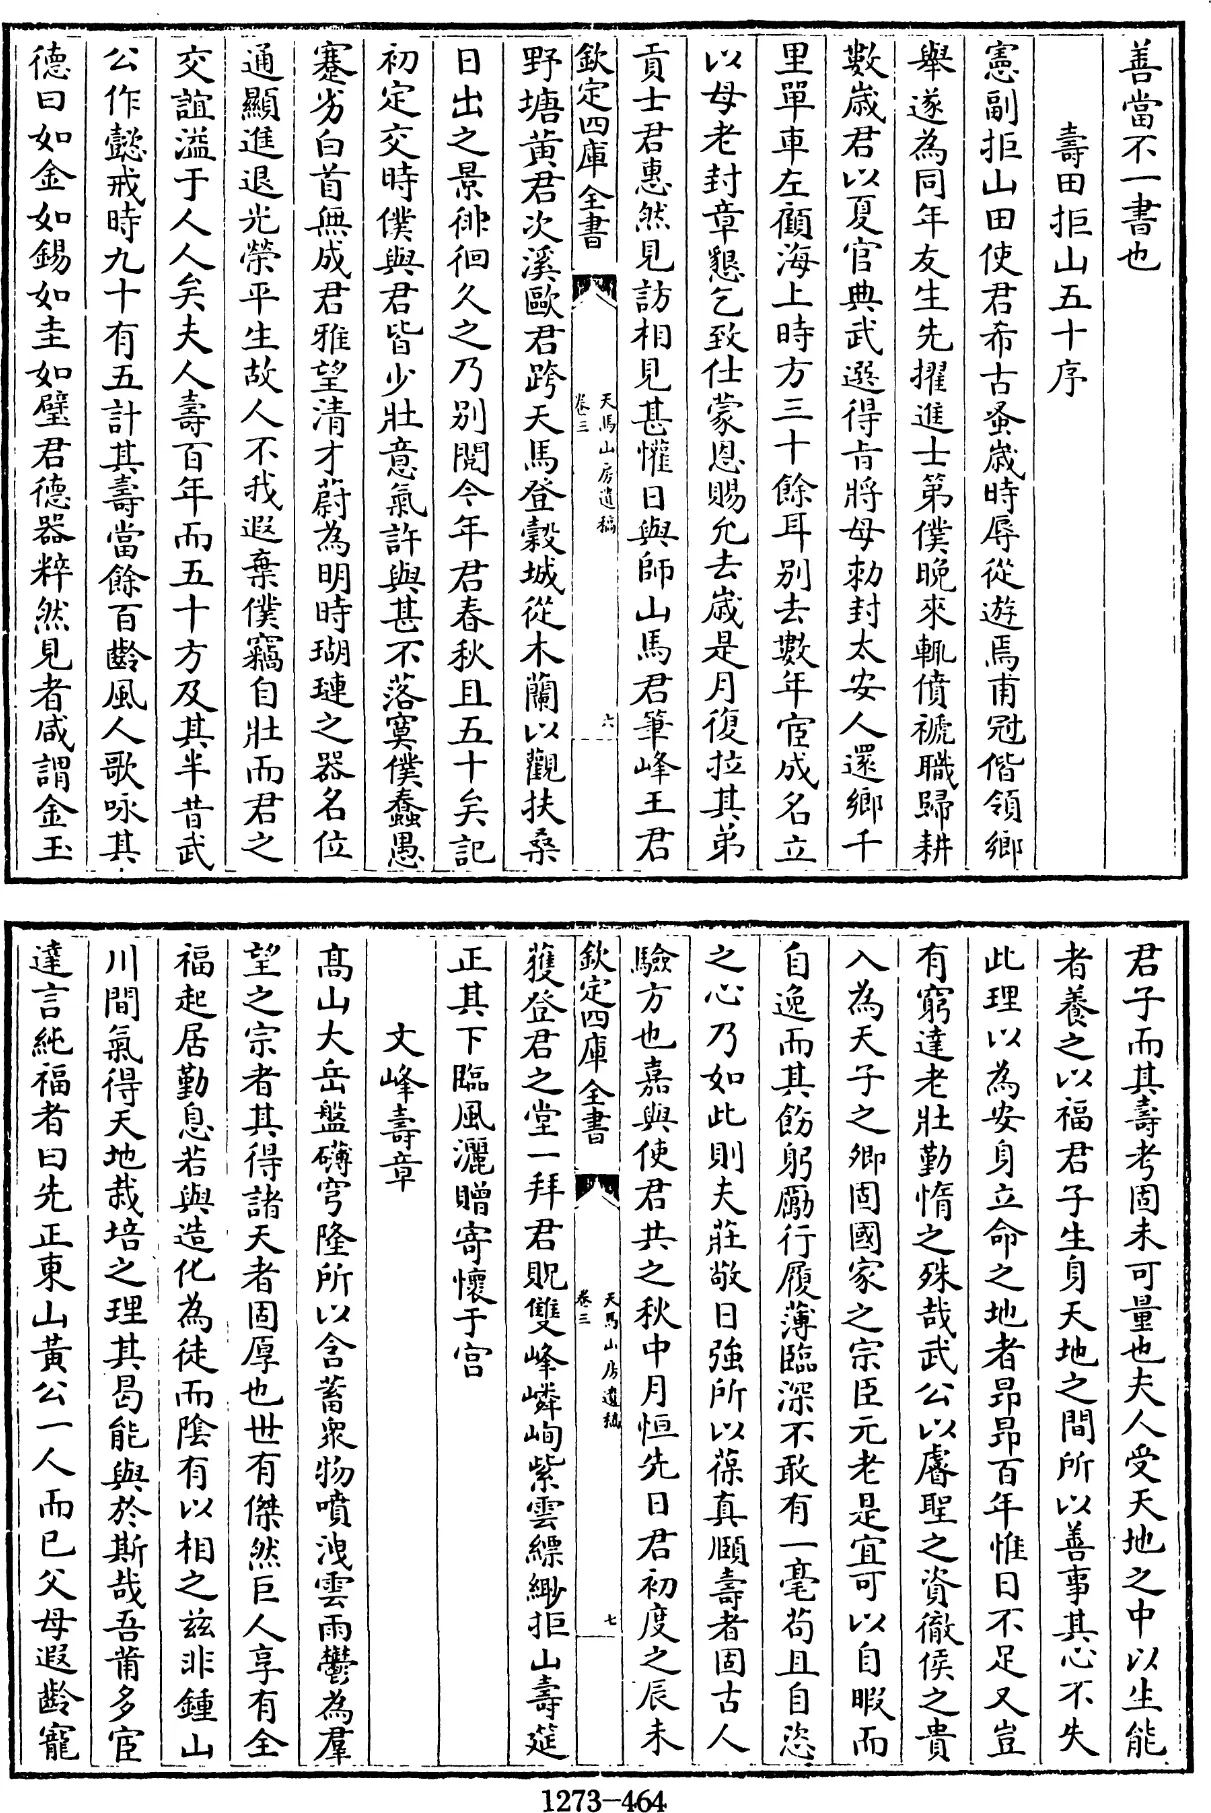 善當不一書也
壽田拒山五十序
憲副拒山田使君希古蚤歲時辱從遊焉甫冠偕領鄉
舉遂為同年友生先擢進士第僕晚來輒僨褫職歸耕
數歲君以夏官典武選得㫖將母勅封太安人還鄉千
里單車左顧海上時方三十餘耳别去數年宦成名立
以母老封章懇乞致仕蒙恩賜允去歲是月復拉其弟
貢士君惠然見訪相見甚懽日與師山馬君筆峰王君
欽定四庫全書
天馬山房遺稿
卷三
六
野塘黃君次溪歐君跨天馬登穀城從木蘭以觀扶桑
日出之景徘徊久之乃别閱今年君春秋且五十矣記
初定交時僕與君皆少壯意氣許與甚不落寞僕蠢愚
蹇劣白首無成君雅望清才蔚為明時瑚璉之器名位
通顯進退光榮平生故人不我遐棄僕竊自壯而君之
交誼溢于人人矣夫人壽百年而五十方及其半昔武
公作懿戒時九十有五計其壽當餘百齡風人歌咏其
德曰如金如錫如圭如璧君德器粹然見者咸謂金玉
君子而其壽考固未可量也夫人受天地之中以生能
者養之以福君子生身天地之間所以善事其心不失
此理以為安身立命之地者昻昻百年惟日不足又豈
有窮達老壯勤惰之殊哉武公以睿聖之資徹侯之貴
入為天子之卿固國家之宗臣元老是宜可以自暇而
自逸而其飭躬勵行履薄臨深不敢有一毫苟且自恣
之心乃如此則夫莊敬日強所以葆真頤壽者固古人
驗方也嘉與使君共之秋中月恒先日君初度之辰未
欽定四庫全書
天馬山房遺稿
卷三
七
獲登君之堂一拜君貺雙峰嶙峋紫雲縹緲拒山壽筵
正其下臨風灑贈寄懷于宫
文峰壽章
髙山大岳盤礴穹隆所以含蓄衆物噴洩雲雨鬱為羣
望之宗者其得諸天者固厚也世有傑然巨人享有全
福起居勤息若與造化為徒而陰有以相之兹非鍾山
川間氣得天地栽培之理其曷能與於斯哉吾莆多宦
達言純福者曰先正東山黃公一人而已父母遐齡寵
1273-464